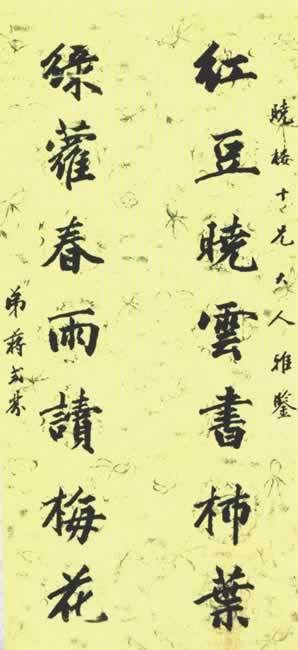 曉樓十兄大人雅鑒
紅豆曉雲書柿葉
綠蘿春雨讀梅花
弟蔣式芬